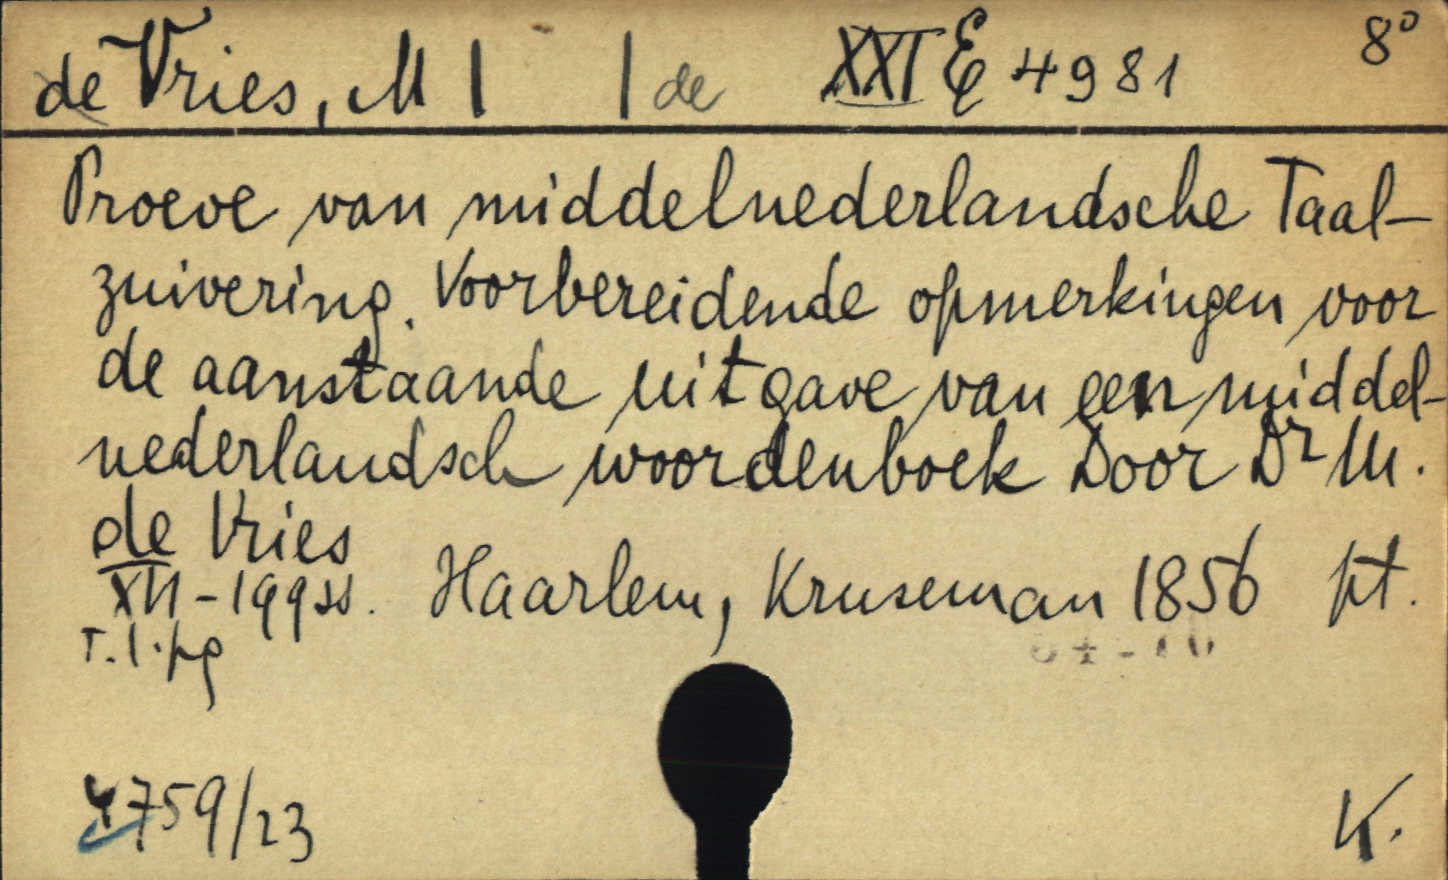 de Vries, M | | de XXI E 4981 8°
Proeve van middelnederlandsche Taal-
zuivering. Voorbereidende opmerkingen voor
de aanstaande uitgave van een middel-
nederlandsch woordenboek Door Dr M.
de Vries
XII-199 ss. Haarlem, Kruseman 1856 pt.
T. l. pg
4759/23 K.